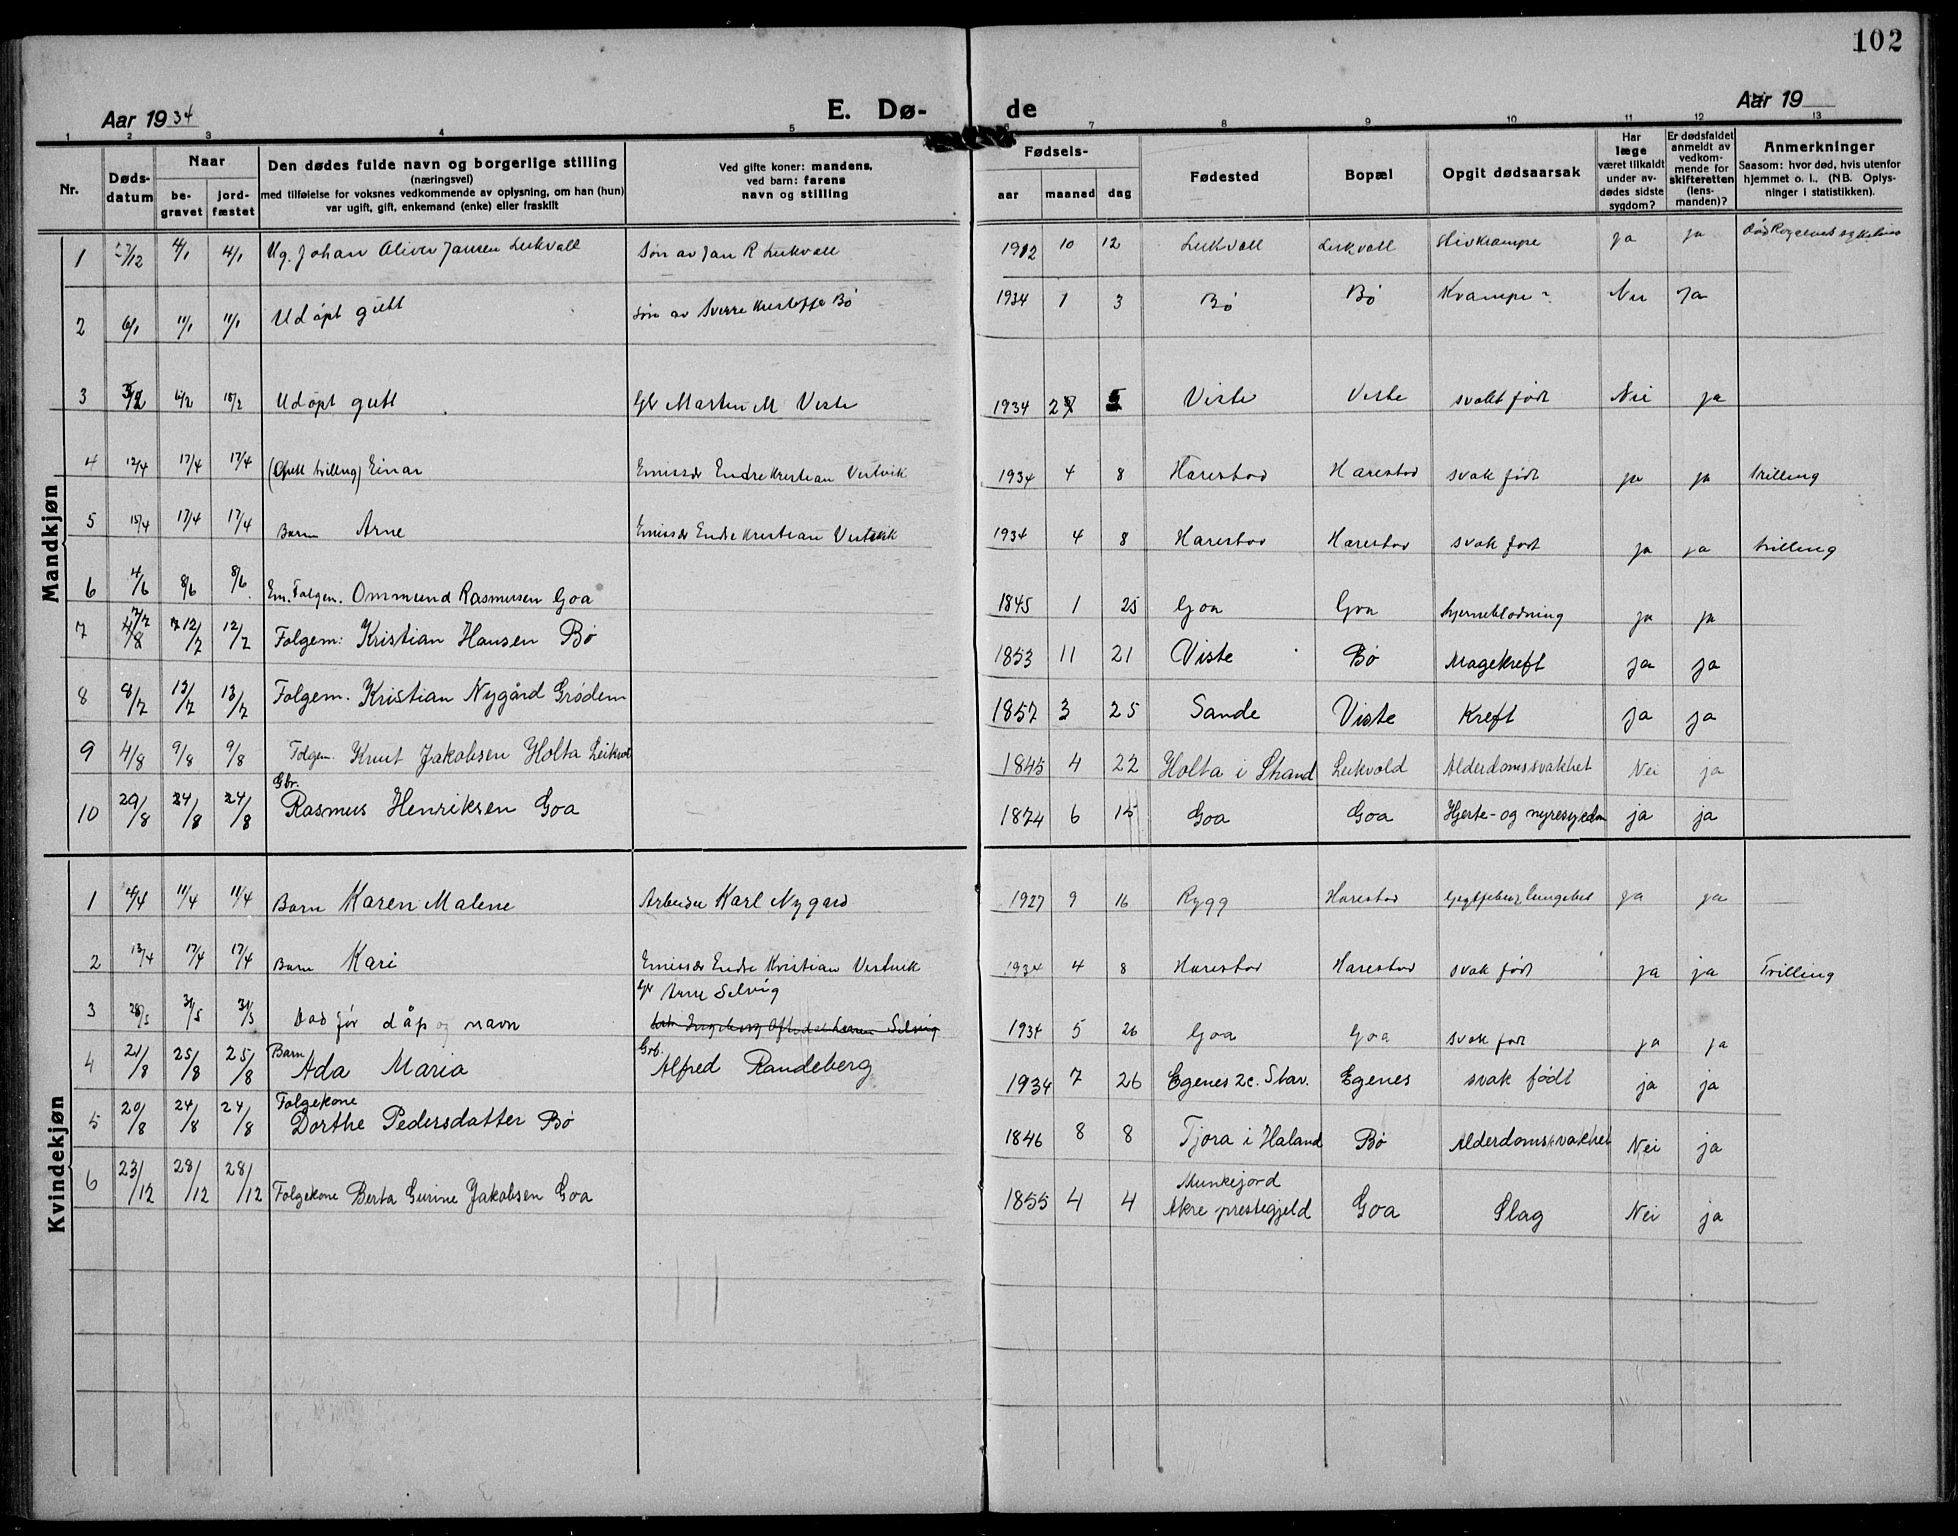 102
Aar 1934
E. Dø- de
Aar 19
1 2 3 4 5 6 7 8 9 10 11 12 13
Nr.
Døds-
datum
Naar
be-
gravet
jord-
fæstet
Den dødes fulde navn og borgerlige stilling
(næringsvei)
med tilføielse for voksnes vedkommende av oplysning, om han (hun)
var ugift, gift, enkemand (enke) eller fraskilt
Ved gifte koner: mandens,
ved barn: farens
navn og stilling
Fødsels-
aar maaned dag
Fødested
Bopæl
Opgit dødsaarsak
Har
læge
været tilkaldt
under av-
dødes sidste
sygdom?
Er dødsfaldet
anmeldt av
vedkom-
mende for
skifteretten
(lens-
manden)?
Anmerkninger
Saasom: hvor død, hvis utenfor
hjemmet o. l., (NB. Oplys-
ninger i statistikken).
Mandkjøn
1 27/12 4/1 4/1 Ug. Johan Oliver Jansen Leikvoll Søn av Jan R Leikvoll 1912 10 12 Leikvoll Leikvoll stivkrampe ja ja
2 6/1 11/1 11/1 Udøpt gutt Søn av Sverre Kristoffer Bø 1934 1 3 Bø Bø Krampe Nei Ja
3 5/2 15/2 Udøpt gutt Gbr Marten M Viste 1934 2 5 Viste Viste svakt født Nei ja
4 12/4 17/4 17/4 (Gutt trilling) Einar Emissær Endre Kristian Vestvik 1934 4 8 Harestad Harestad svak født ja ja trilling
5 15/4 17/4 17/4 Barn Arne Emissær Endre Kristian Vestvik 1934 4 8 Harestad Harestad svak født ja ja trilling
6 4/6 8/6 8/6 Em. Folgem. Ommund Rasmusen Goa 1845 1 25 Goa Goa hjerneblødning ja ja
7 7/7 12/7 12/7 Folgem: Kristian Hansen Bø 1853 11 21 Viste Bø Magekreft ja ja
8 8/7 13/7 13/7 Folgem. Kristian Nygård Grødem 1857 3 25 Sande Viste Kreft ja ja
9 4/8 9/8 9/8 Folgem. Knut Jakobsen Holta Leikvol 1845 4 22 Holta i Strand Leikvold Alderdomssvakhet Nei ja
10 20/8 24/8 24/8 Gbr. Rasmus Henriksen Goa 1874 6 15 Goa Goa Hjerte- og nyresykdom ja ja
Kvindekjøn
1 4/4 11/4 11/4 Barn Karen Malene Arbeider Karl Nygård 1927 9 16 Rygg Harestad ja ja
2 13/4 17/4 17/4 Barn Kari Emissær Endre Kristian Vestvik 1934 4 8 Harestad Harestad svak født ja ja Trilling
3 28/5 31/5 31/5 Død før dåp og navn Gbr Arne Selvig 1934 5 26 Goa Goa svak født ja ja
4 21/8 25/8 25/8 Barn Ada Maria Grb. Alfred Randeberg 1934 7 26 Egenes 2c. Stav. Egenes svak født ja ja
5 20/8 24/8 24/8 Folgekone Dorthe Pedersdatter Bø 1846 8 8 Tjora i Haland Bø Alderdomsvakhet Nei ja
6 23/12 28/12 28/12 Folgekone Berta Gurine Jakobsen Goa 1855 4 4 Munkejord Akre prestegjeld Goa Slag Nei ja